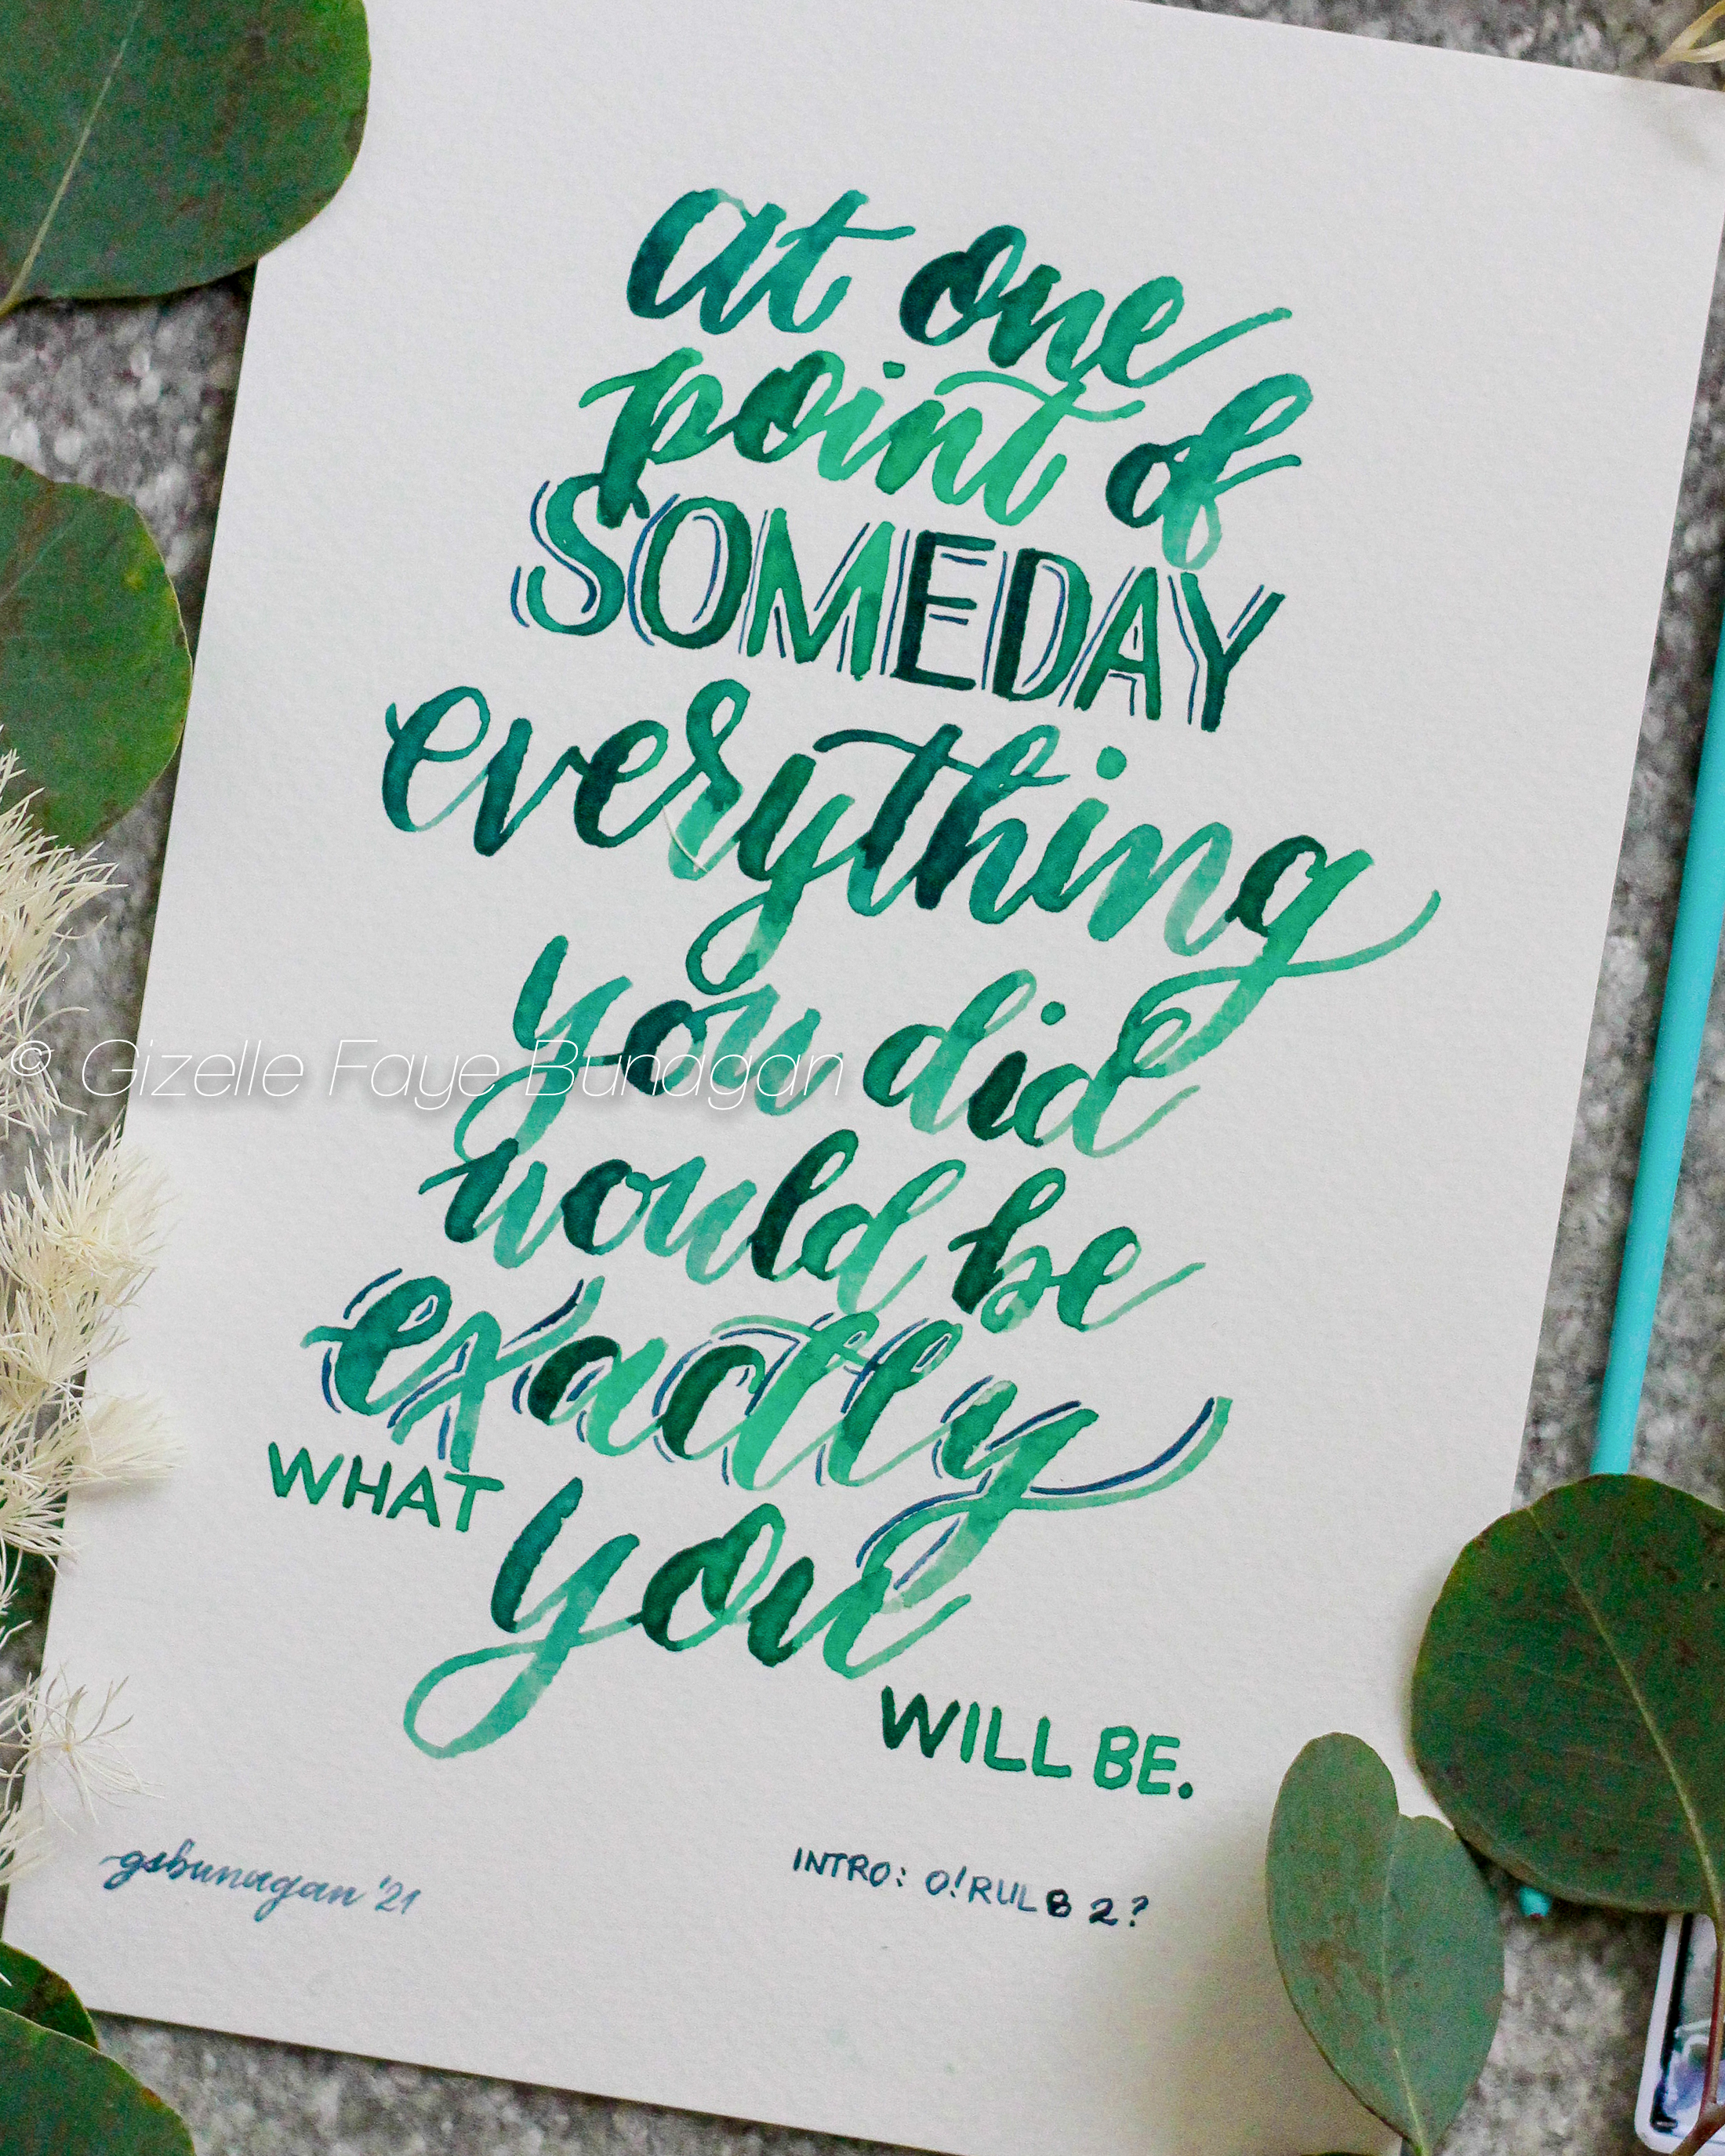 at one
point of
SOMEDAY
everything
you did
© Gizelle Faye Bunagan
would be
exactly
WHAT you
WILL BE.
gsbunagan '21
INTRO: O!RUL8 2?